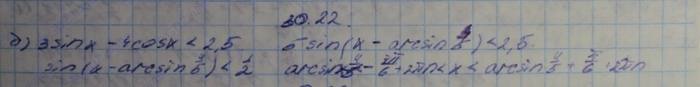 30.22.
б) 3sinx - 4cosx < 2,5 5 sin(x - arcsin 4/5) < 2,5
sin(x - arcsin 4/5) < 1/2 arcsin 4/5 - 7π/6 + 2πn < x < arcsin 4/5 + π/6 + 2πn